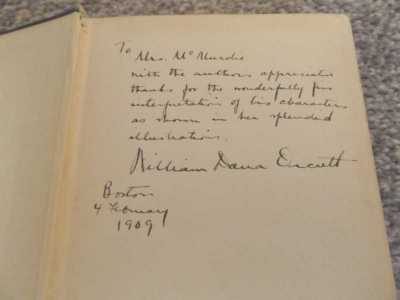 To
Mrs. McMurdie
with the authors appreciative
thanks for the wonderfully fine
interpretation of his characters
as shown in her splended
illustrations.
William Dana
Boston
4 February
1909